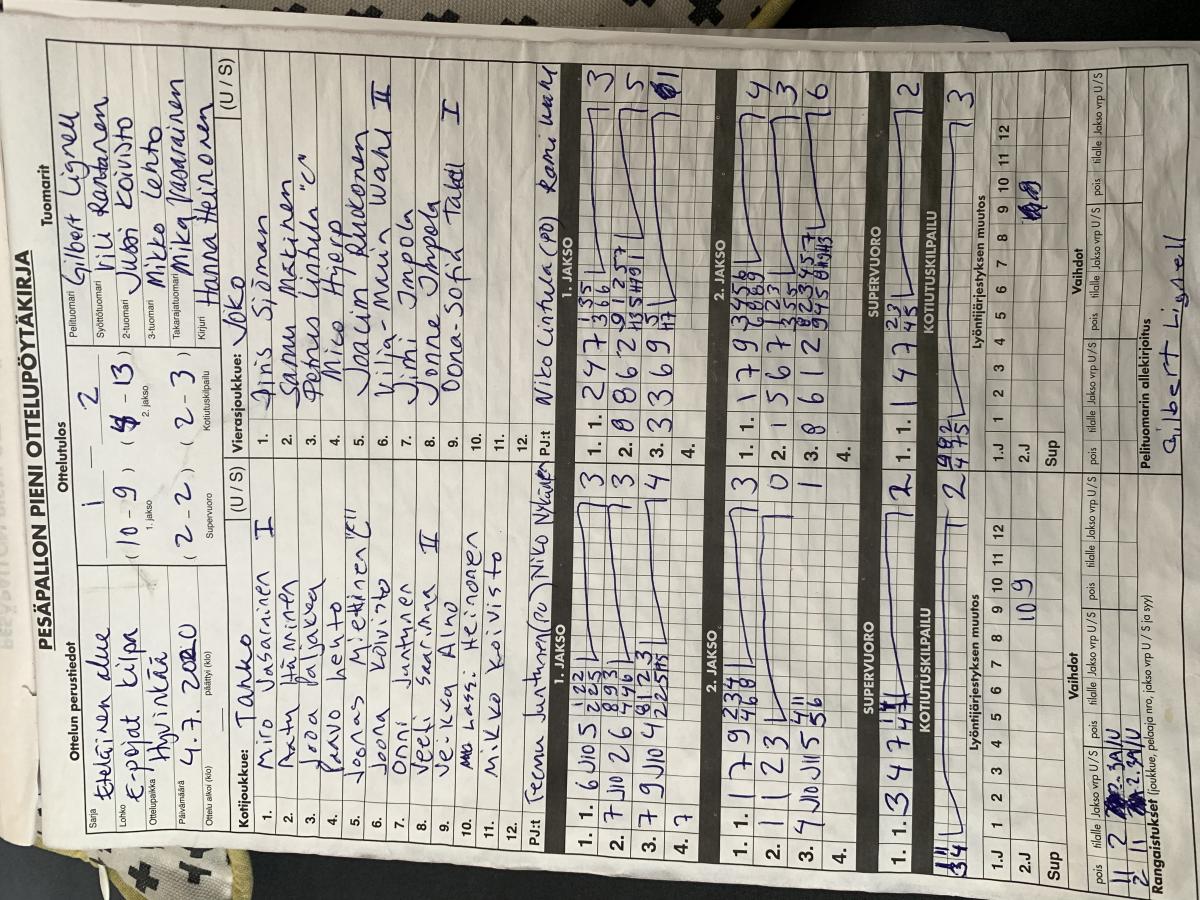 PESÄPALLON PIENI OTTELUPÖYTÄKIRJA
Ottelun perustiedot
Sarja Eteläinen alue
Lohko E-pojat kilpa
Ottelupaikka Hyvinkää
Päivämäärä 4.7.2020
Ottelu alkoi (klo) päättyi (klo)
Ottelutulos
1 - 2
(10 - 9) ( - 13)
1. jakso 2. jakso
(2 - 2) (2 - 3)
Supervuoro Kotiutuskilpailu
Tuomarit
Pelituomari Gilbert Lignell
Syöttötuomari Vili Rantanen
2-tuomari Jussi Koivisto
3-tuomari Mikko Lehto
Takarajatuomari Mika Vasarainen
Kirjuri Hanna Heinonen
Kotijoukkue: Tahko (U / S)
1. Miro Vasarainen I
2. Hänninen
3. Joona Paljakka
4. Paavo Lehto
5. Joonas Miettinen "C"
6. Joona Koivisto
7. Onni Juntunen
8. Veeti Saarinna II
9. Veikka Alho
10. Lassi Heinonen
11. Mikko Koivisto
12.
PJ:t Teemu Juntunen (PJ) Niko Nykänen
Vierasjoukkue: JoKo (U / S)
1. Iiris Siöman
2. Sanni Mäkinen
3. Petrus Lintula "C"
4. Mico Hjerp
5. Joacim Ruokonen
6. Vilja Wahl II
7. Jimi Impola
8. Jonne Impola
9. Oona-Sofia I
10.
11.
12.
PJ:t Niko Lintula (PJ) Rami Wahl
1. JAKSO
1. 1. 6 J10 5 3
2. 7 J10 2 6 3
3. 7 9 J10 4 4
4. 7
1. JAKSO
1. 1. 2 4 7 3
2. 8 8 6 2 5
3. 3 3 6 9 1
4.
2. JAKSO
1. 1. 1 7 9 3
2. 1 1 2 3 0
3. 4 J10 J11 5 1
4.
2. JAKSO
1. 1. 1 7 9 4
2. 1 5 6 7 3
3. 8 6 1 2 6
4.
SUPERVUORO
1. 1. 3 4 7 2
SUPERVUORO
1. 1. 1 4 7 2
KOTIUTUSKILPAILU
2
KOTIUTUSKILPAILU
3
Lyöntijärjestyksen muutos
1.J 1 2 3 4 5 6 7 8 9 10 11 12
2.J 10 9
Sup
Lyöntijärjestyksen muutos
1.J 1 2 3 4 5 6 7 8 9 10 11 12
2.J
Sup
Vaihdot
pois tilalle Jakso vrp U/S pois tilalle Jakso vrp U/S pois tilalle Jakso vrp U/S
11 2 2. 3A/U
2 11 2. 3A/U
Vaihdot
pois tilalle Jakso vrp U/S pois tilalle Jakso vrp U/S pois tilalle Jakso vrp U/S
Rangaistukset (joukkue, pelaaja nro, jakso vrp U / S ja syy)
Pelituomarin allekirjoitus
Gilbert Lignell